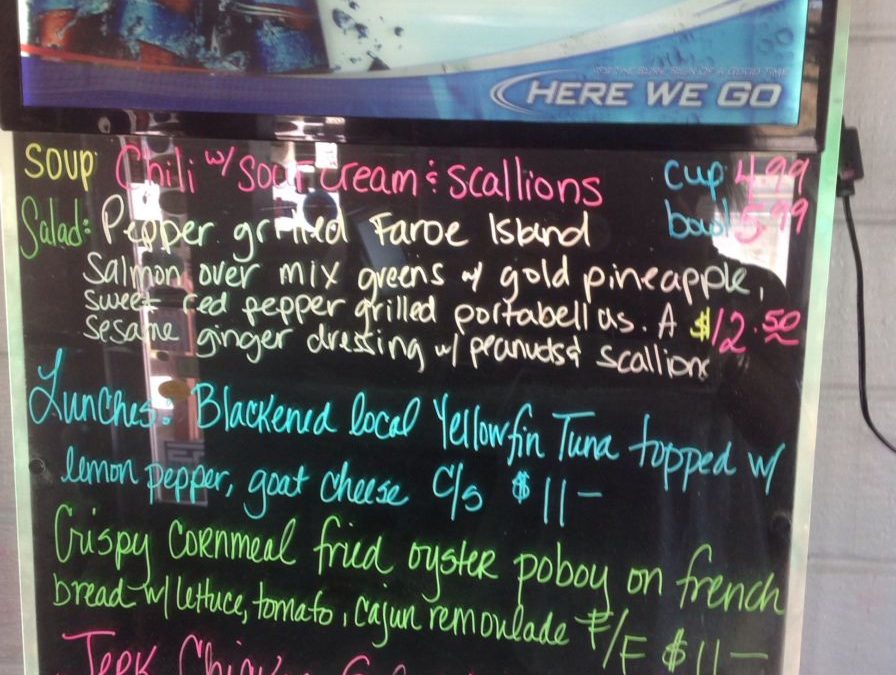 HERE WE GO
Soup: Chili w/ Sour Cream & Scallions cup 4.99
Salad: Pepper grilled Faroe Island bowl 5.99
Salmon over mix greens w/ gold pineapple,
sweet red pepper grilled portabellas. A $12.50
sesame ginger dressing w/ peanuds & scallions
Lunches: Blackened local Yellowfin Tuna topped w/
lemon pepper, goat cheese C/s $11-
Crispy Cornmeal fried oyster poboy on french
bread w/ lettuce, tomato, cajun remoulade F/F $11-
Jerk Chicken